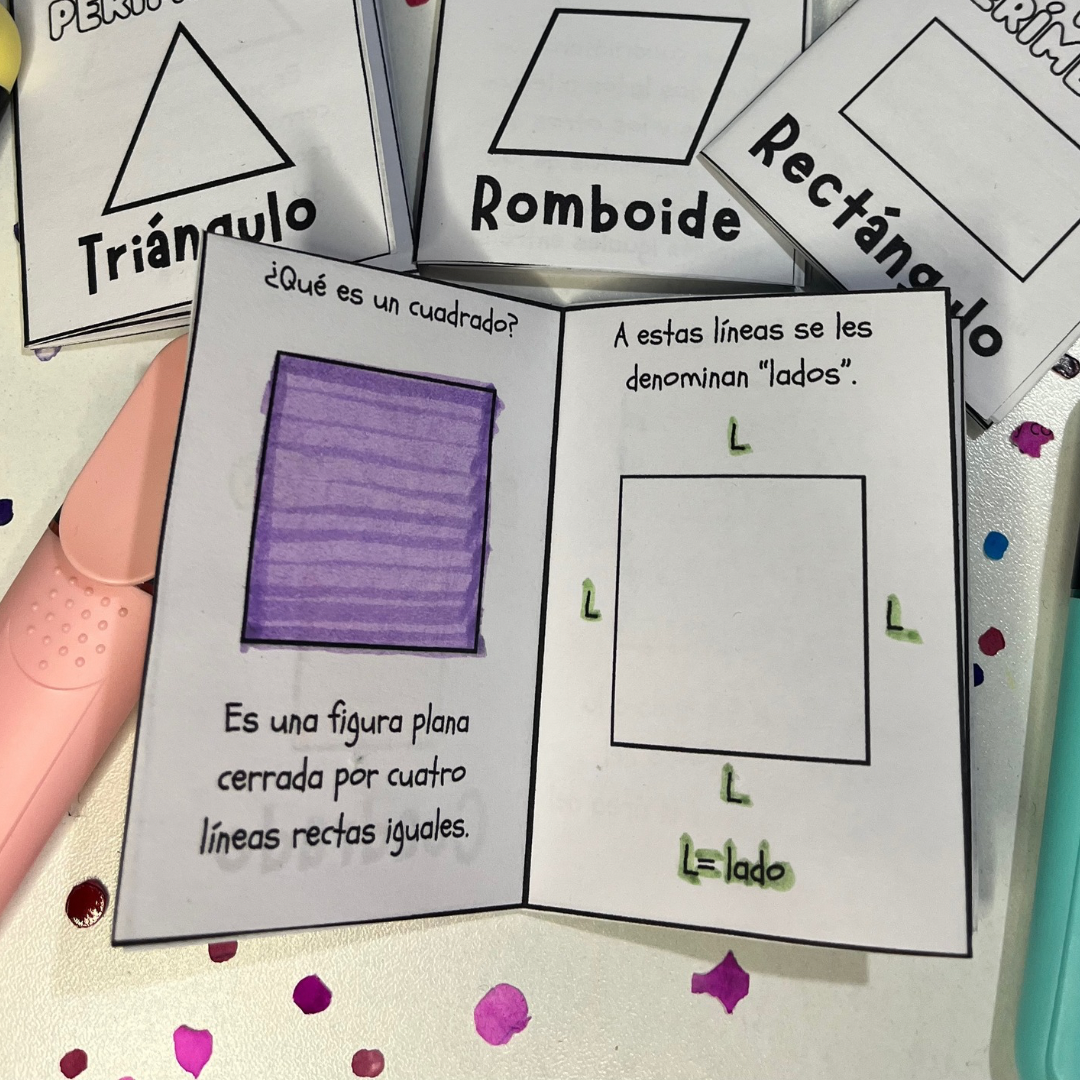 Triángulo
Romboide
Rectángulo
¿Qué es un cuadrado?
Es una figura plana
cerrada por cuatro
líneas rectas iguales.
A estas líneas se les
denominan “lados”.
L
L
L
L
L= lado